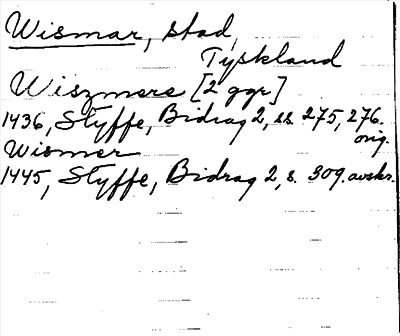 Wismar, stad,
Tyskland
Wiszmere [2 ggr]
1436, Styffe, Bidrag 2, ss. 275, 276.
orig.
Wismer
1445, Styffe, Bidrag 2, s. 309. avskr.